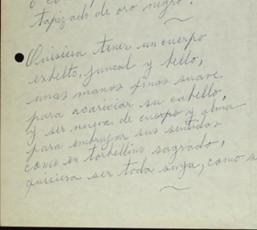 tapizado de oro negro.
Quisiera tener un cuerpo
esbelto, juncal y bello,
unas manos finas suave
para acariciar su cabello,
y ser nueva de cuerpo y alma
para embrujar sus sentidos
como en torbellino sagrado,
quisiera ser toda suya, como s